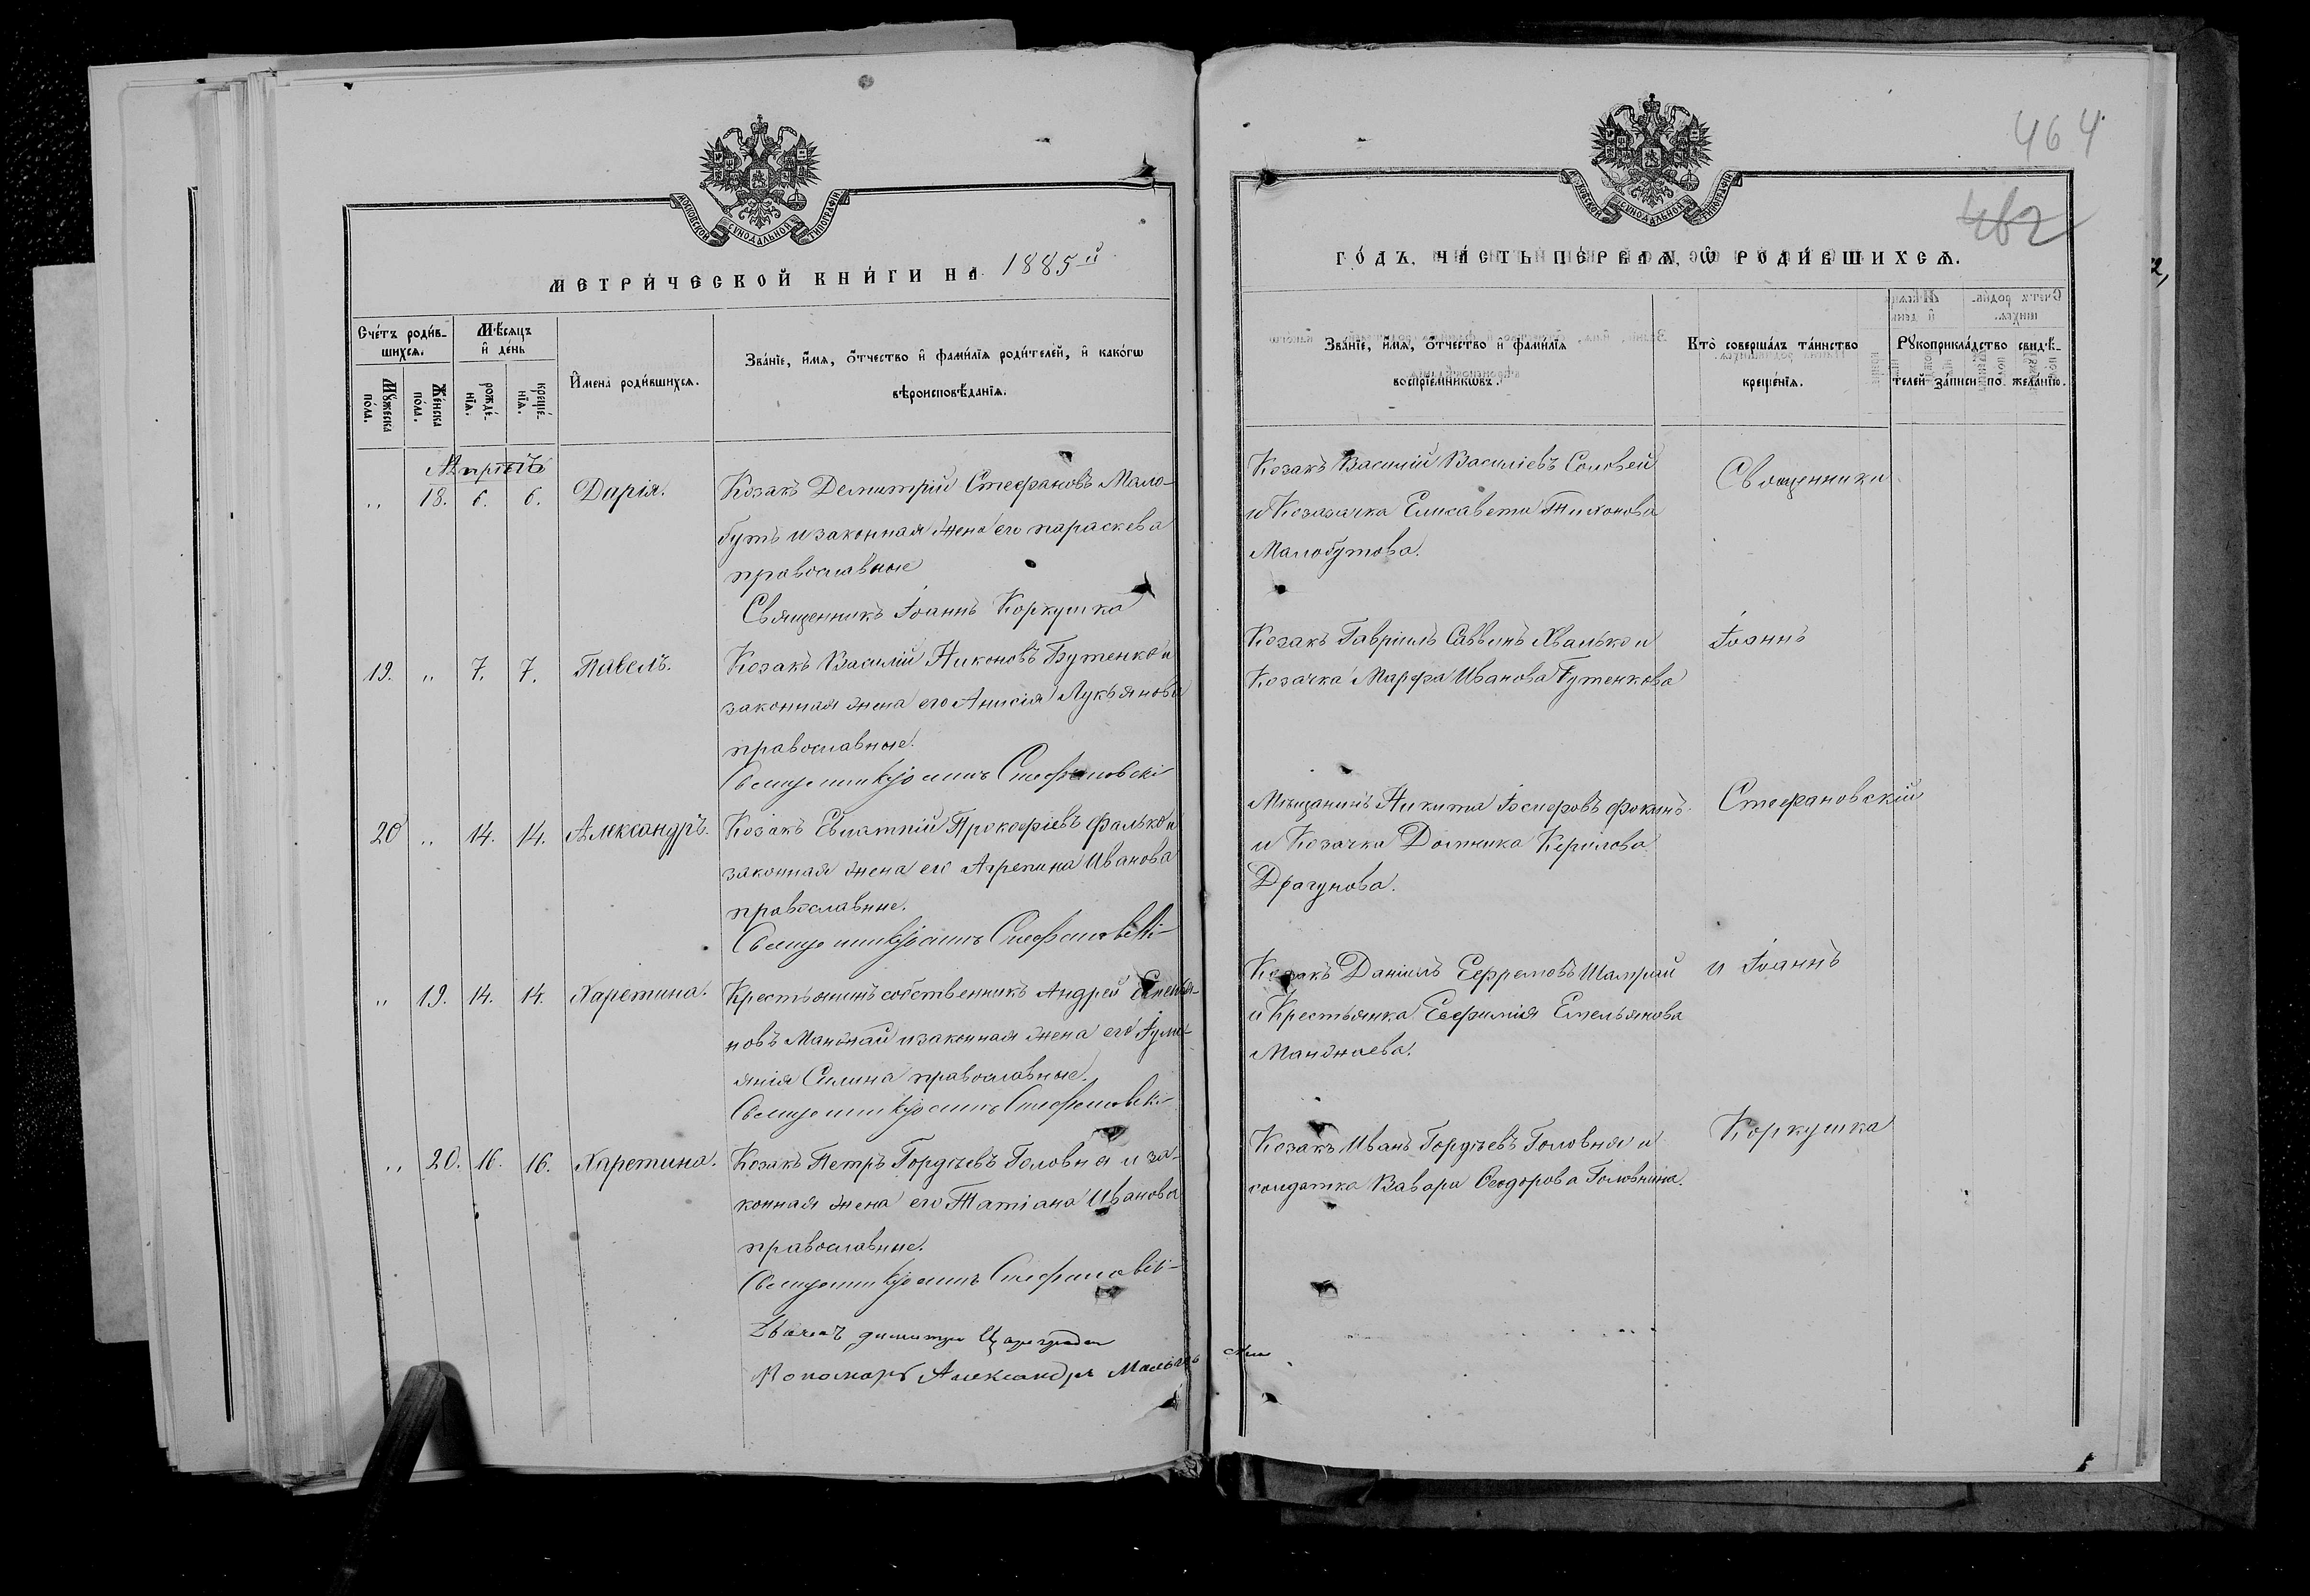 МОСКОВСКОЙ СѴНОДАЛЬНОЙ ТИПОГРАФІИ
МЕТРИ́ЧЕСКОЙ КНИ́ГИ НА 1885й
Сче́тъ роди́в-
шихсѧ.
Мꙋ́жеска
по́ла.
Же́нска
по́ла.
Мѣ́сѧцъ
и҆ де́нь
рожде́-
нїѧ.
креще́-
нїѧ.
И҆мена̀ роди́вшихсѧ.
Зва́нїе, и҆́мѧ, ѻ҆́тчество и҆ фами́лїѧ роди́телей, и҆ како́гѡ
вѣроисповѣ́данїѧ.
Апрѣль
„ 18. 6. 6. Дарія. Козакъ Демитрій Стефановъ Мало-
бутъ и законная жена его параскева
православные
Священникъ Іоаннъ Коркушка
19. „ 7. 7. Павелъ. Козакъ Василій Никоновъ Бутенко и
законная жена его Анисія Лукьянова
православные.
Священникъ Іоаннъ Стефановскій
20 „ 14. 14. Александръ. Козакъ Евпатій Прокофіевъ Фалько и
законная жена его Агрепина Иванова
православные.
Священникъ Іоаннъ Стефановскій
„ 19. 14. 14. Харетина. Крестьянинъ собственникъ Андрей Емелья-
новъ Манжай и законная жена его Іули-
янія Силина православные.
Священникъ Іоаннъ Стефановскій
„ 20. 16. 16. Харетина. Козакъ Петръ Гордѣевъ Головня и за-
конная жена его Татіана Иванова
православные.
Священникъ Іоаннъ Стефановскій
Пономарь Александръ
464
462
МОСКОВСКОЙ СѴНОДАЛЬНОЙ ТИПОГРАФІИ
ГО́ДЪ, ЧА́СТЬ ПЕ́РВАѦ, Ѡ҆ РОДИ́ВШИХСѦ.
Зва́нїе, и҆́мѧ, ѻ҆́тчество и҆ фами́лїѧ
воспрїе́мникѡвъ.
Кто̀ соверша́лъ та́инство
креще́нїѧ.
Рꙋкоприкла́дство свидѣ́-
телей за́писи по жела́нїю.
Козакъ Василій Василіевъ Соловей
и Козачка Елисавета Тихонова
Малобутова.
Козакъ Гавріилъ Саввинъ Хвалько и
Козачка Марфа Иванова Бутенкова
Мѣщанинъ Никита Іосифовъ Фокинъ
и Козачка Домника Кирілова
Драгунова.
Козакъ Даніилъ Ефремовъ Шамрай
и Крестьянка Евфимія Емельянова
Манжаева.
Козакъ Иванъ Гордѣевъ Головня и
солдатка Вавара Ѳеодорова Головнина.
Священники
Іоаннъ
Стефановскій
и Іоаннъ
Коркушка